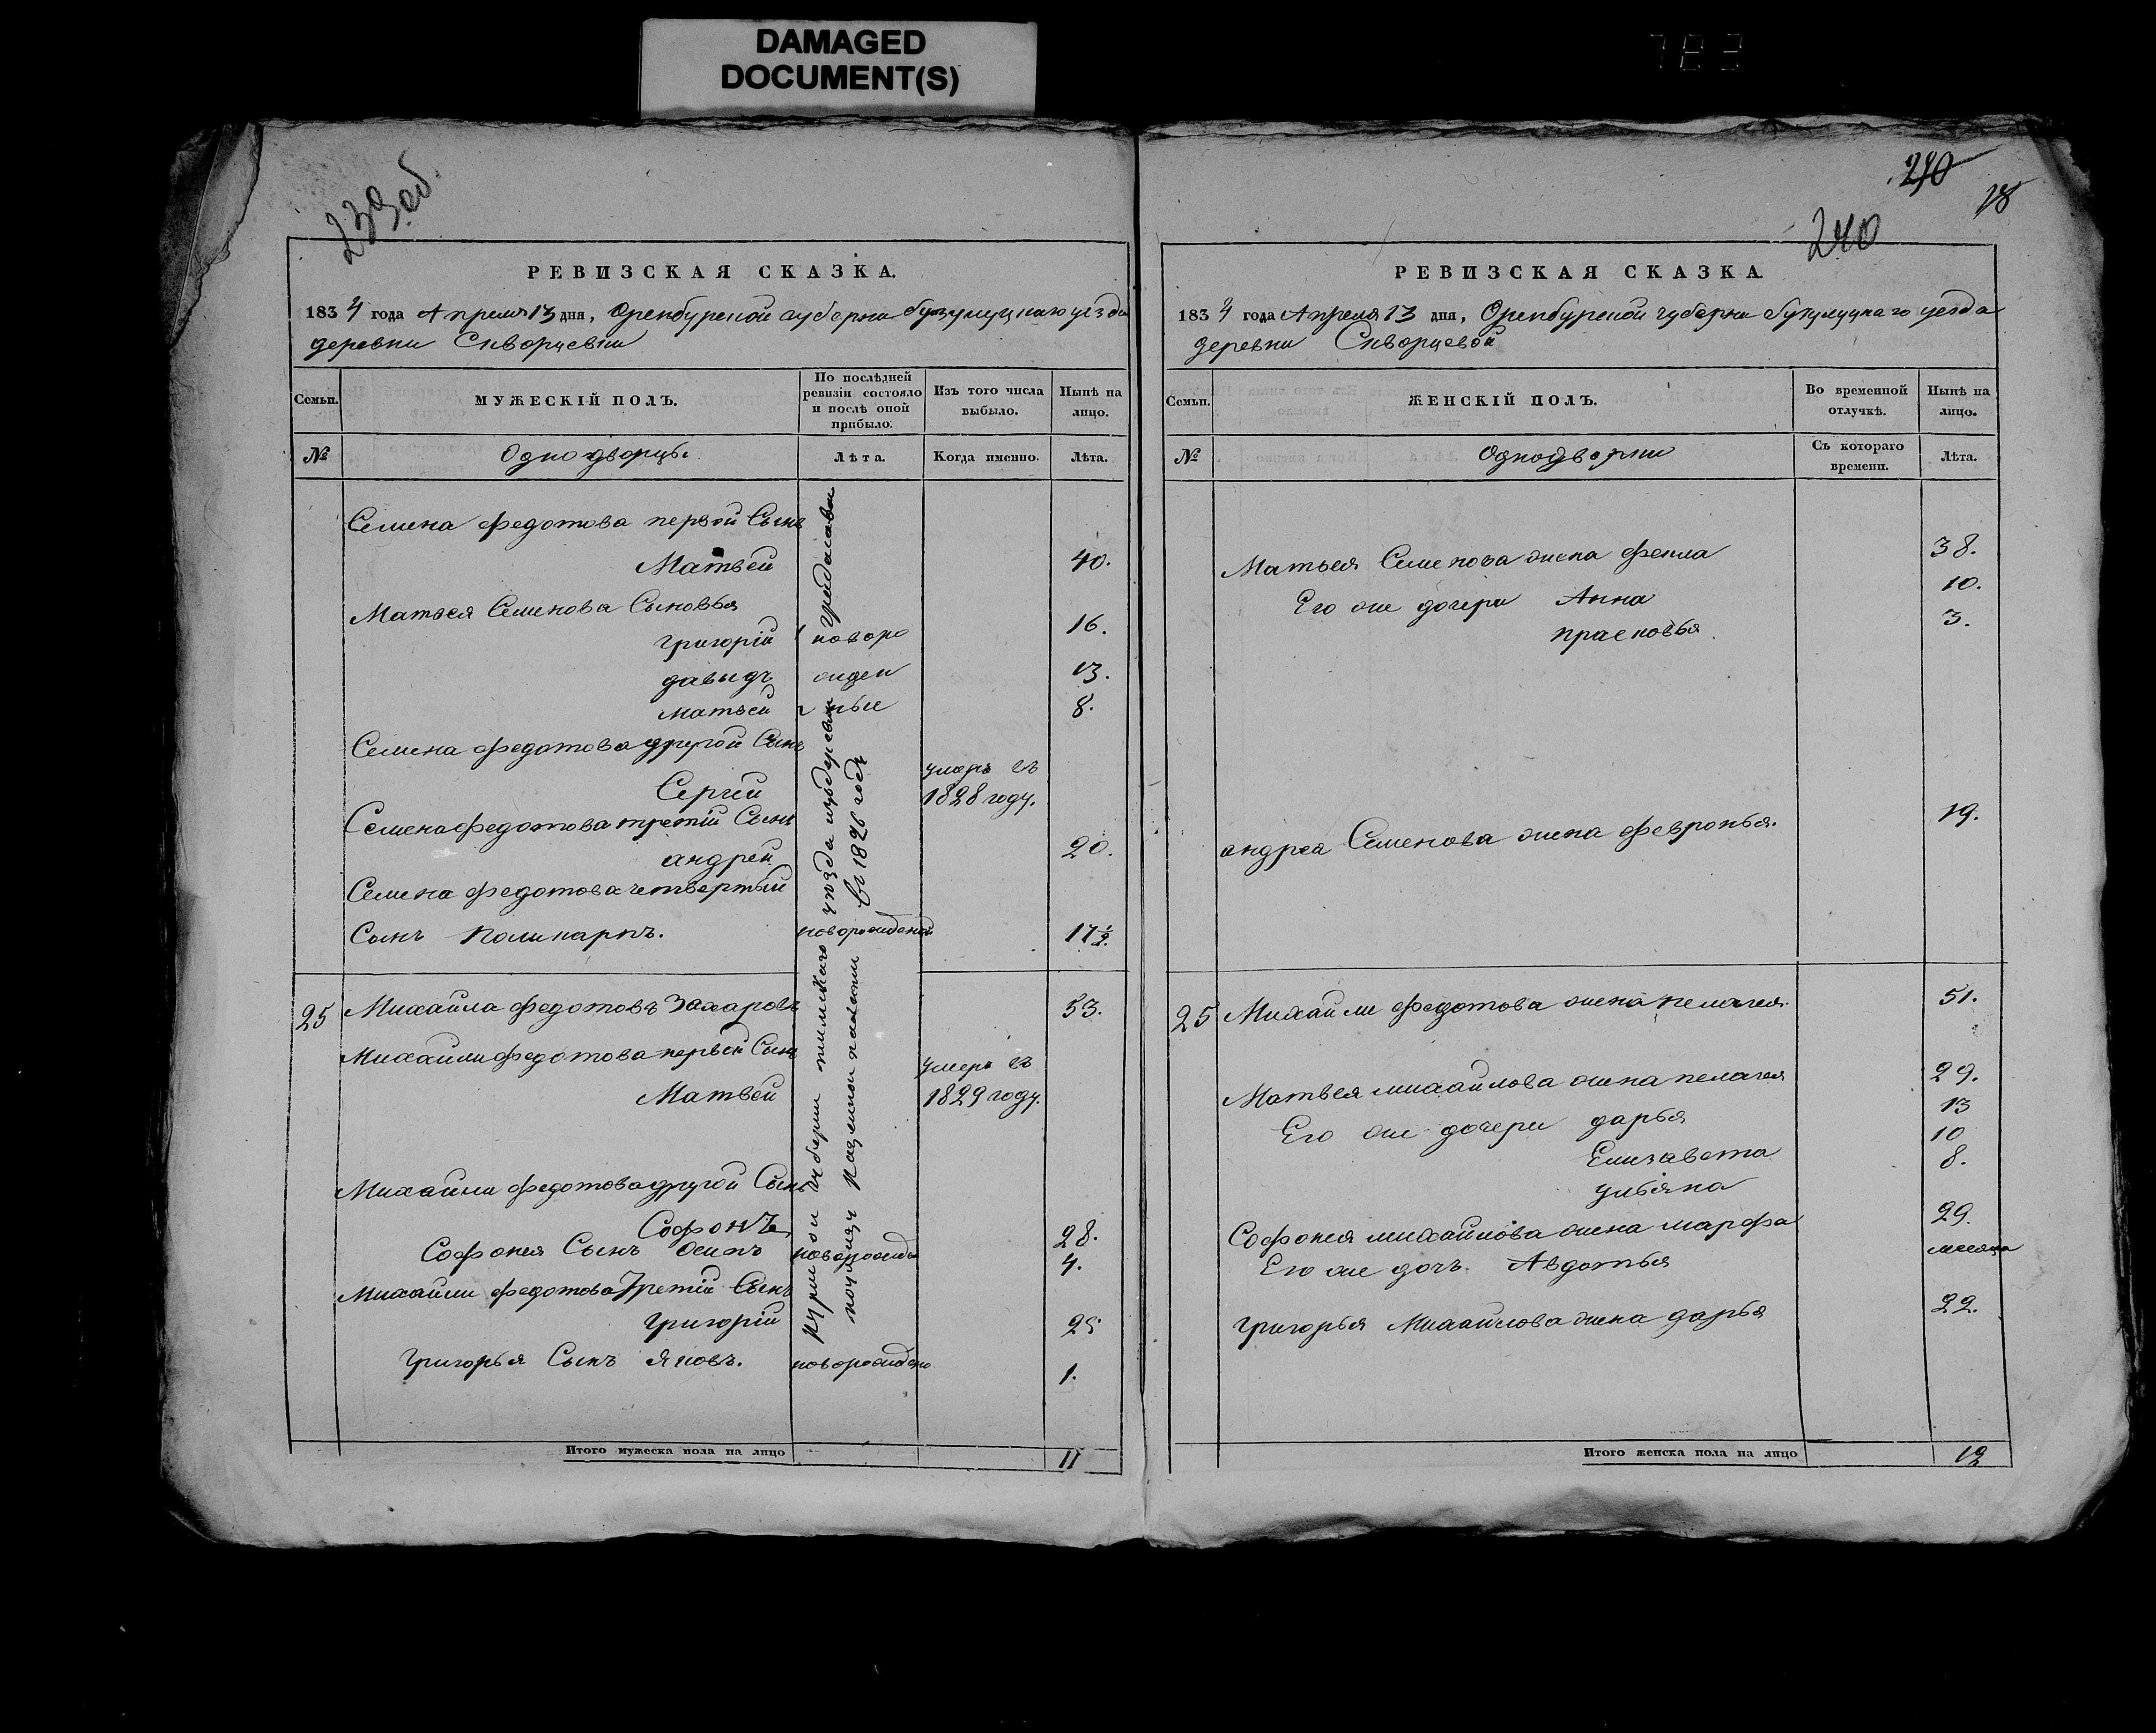 DAMAGED
DOCUMENT(S)
239 об.
РЕВИЗСКАЯ СКАЗКА.
1834 года Апреля 13 дня, Оренбургской губерни бузулуцкаго уезда
деревни Скворцевки
Семьи.
МУЖЕСКІЙ ПОЛЪ.
По послѣдней ревизіи состояло и послѣ оной прибыло.
Изъ того числа выбыло.
Нынѣ на лицо.
№
Однодворцы.
Лѣта.
Когда именно.
Лѣта.
Семена федотова первой Сынъ
Матвей 40.
Матвея Семенова Сыновья
григорій новоро 16.
давыдъ жден 13.
матвей ные 8.
Семена федотова другой Сынъ
Сергей умеръ въ 1828 году.
Семена федотова третій Сынъ
андрей 20.
Семена федотова четвертый
Сынъ Поликарпъ. новорожденой 17 1/2.
25 Михайла федотовъ Захаровъ 53.
Михайли федотова первой Сынъ
Матвей умеръ въ 1829 году.
Михайли федотова другой Сынъ
Софонъ 28.
Софонея Сынъ осипъ новорожде 4.
Михайли федотова Третій Сынъ
григорій 25
григорья Сынъ Яковъ. новорождено 1.
губерни тимскаго уезда из деревни
казенной палаты въ 1826 годе
Итого мужеска пола на лицо 11
240
78
240
РЕВИЗСКАЯ СКАЗКА
1834 года Апреля 13 дня, Оренбургской губерни бузулуцкаго уезда
деревни Скворцевой
Семьи.
ЖЕНСКІЙ ПОЛЪ.
Во временной отлучкѣ.
Нынѣ на лицо.
№
Однодворки
Съ котораго времени.
Лѣта.
Матвея Семенова жена фекла 38.
Его же дочери Анна 10.
прасковья 3.
андрея Семенова жена февронья. 19.
25 Михайли федотова жена пелагея. 51.
Матвея михайлова жена пелагея 29.
Его же дочери дарья 13
Елизавета 10
ульяна 8.
Софонея михайлова жена марфа 29.
Его же дочь Авдотья месяца
григорья Михайлова жена дарья 22.
Итого женска пола на лицо 12